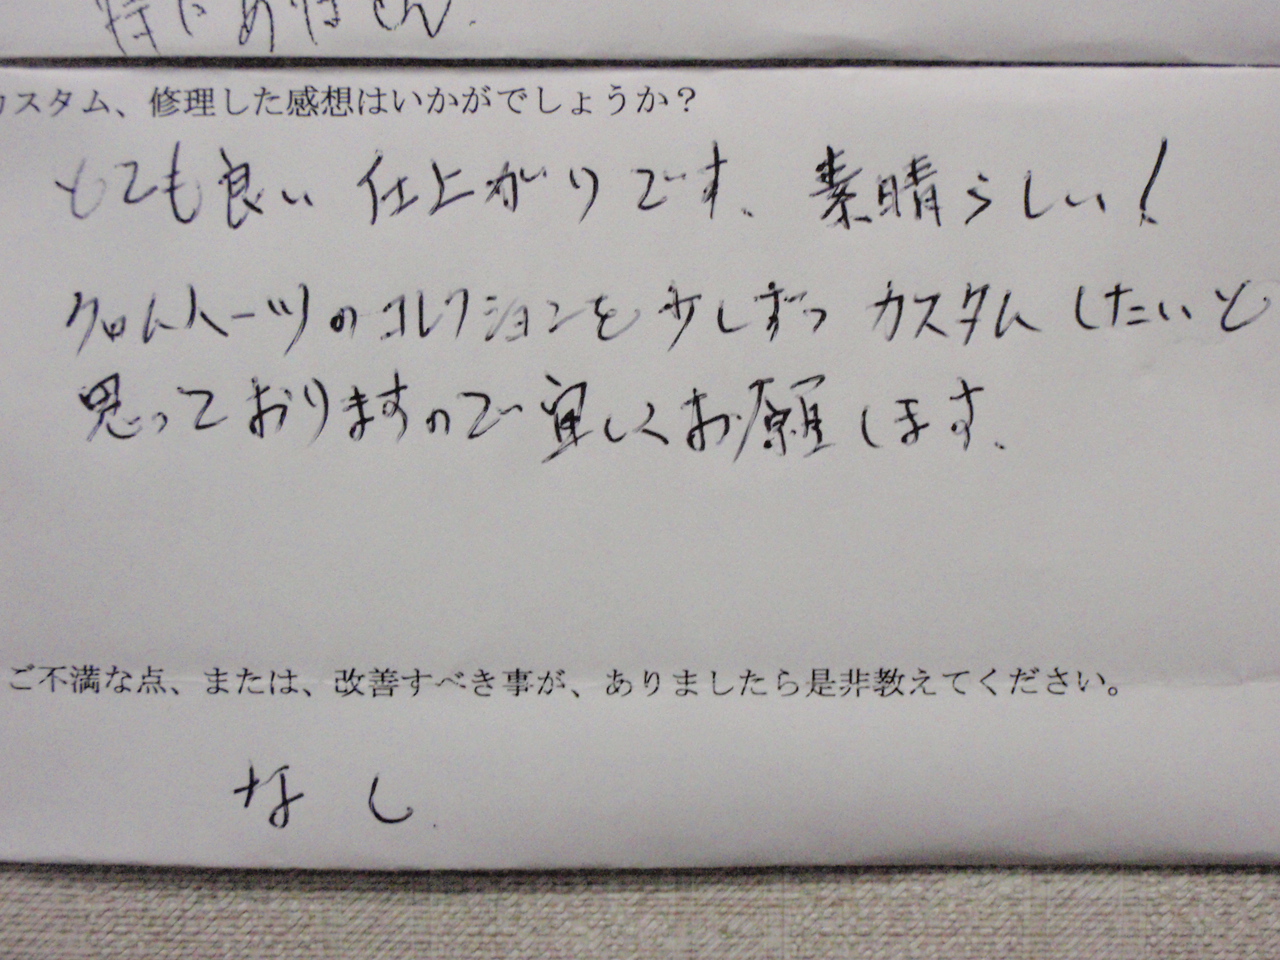 特にありません.
カスタム、修理した感想はいかがでしょうか？
とても良い 仕上がりです、素晴らしい!
クロムハーツのコレクションを少しずつ カスタムしたいと
思っておりますので宜しくお願します、
ご不満な点、または、改善すべき事が、ありましたら是非教えてください。
なし